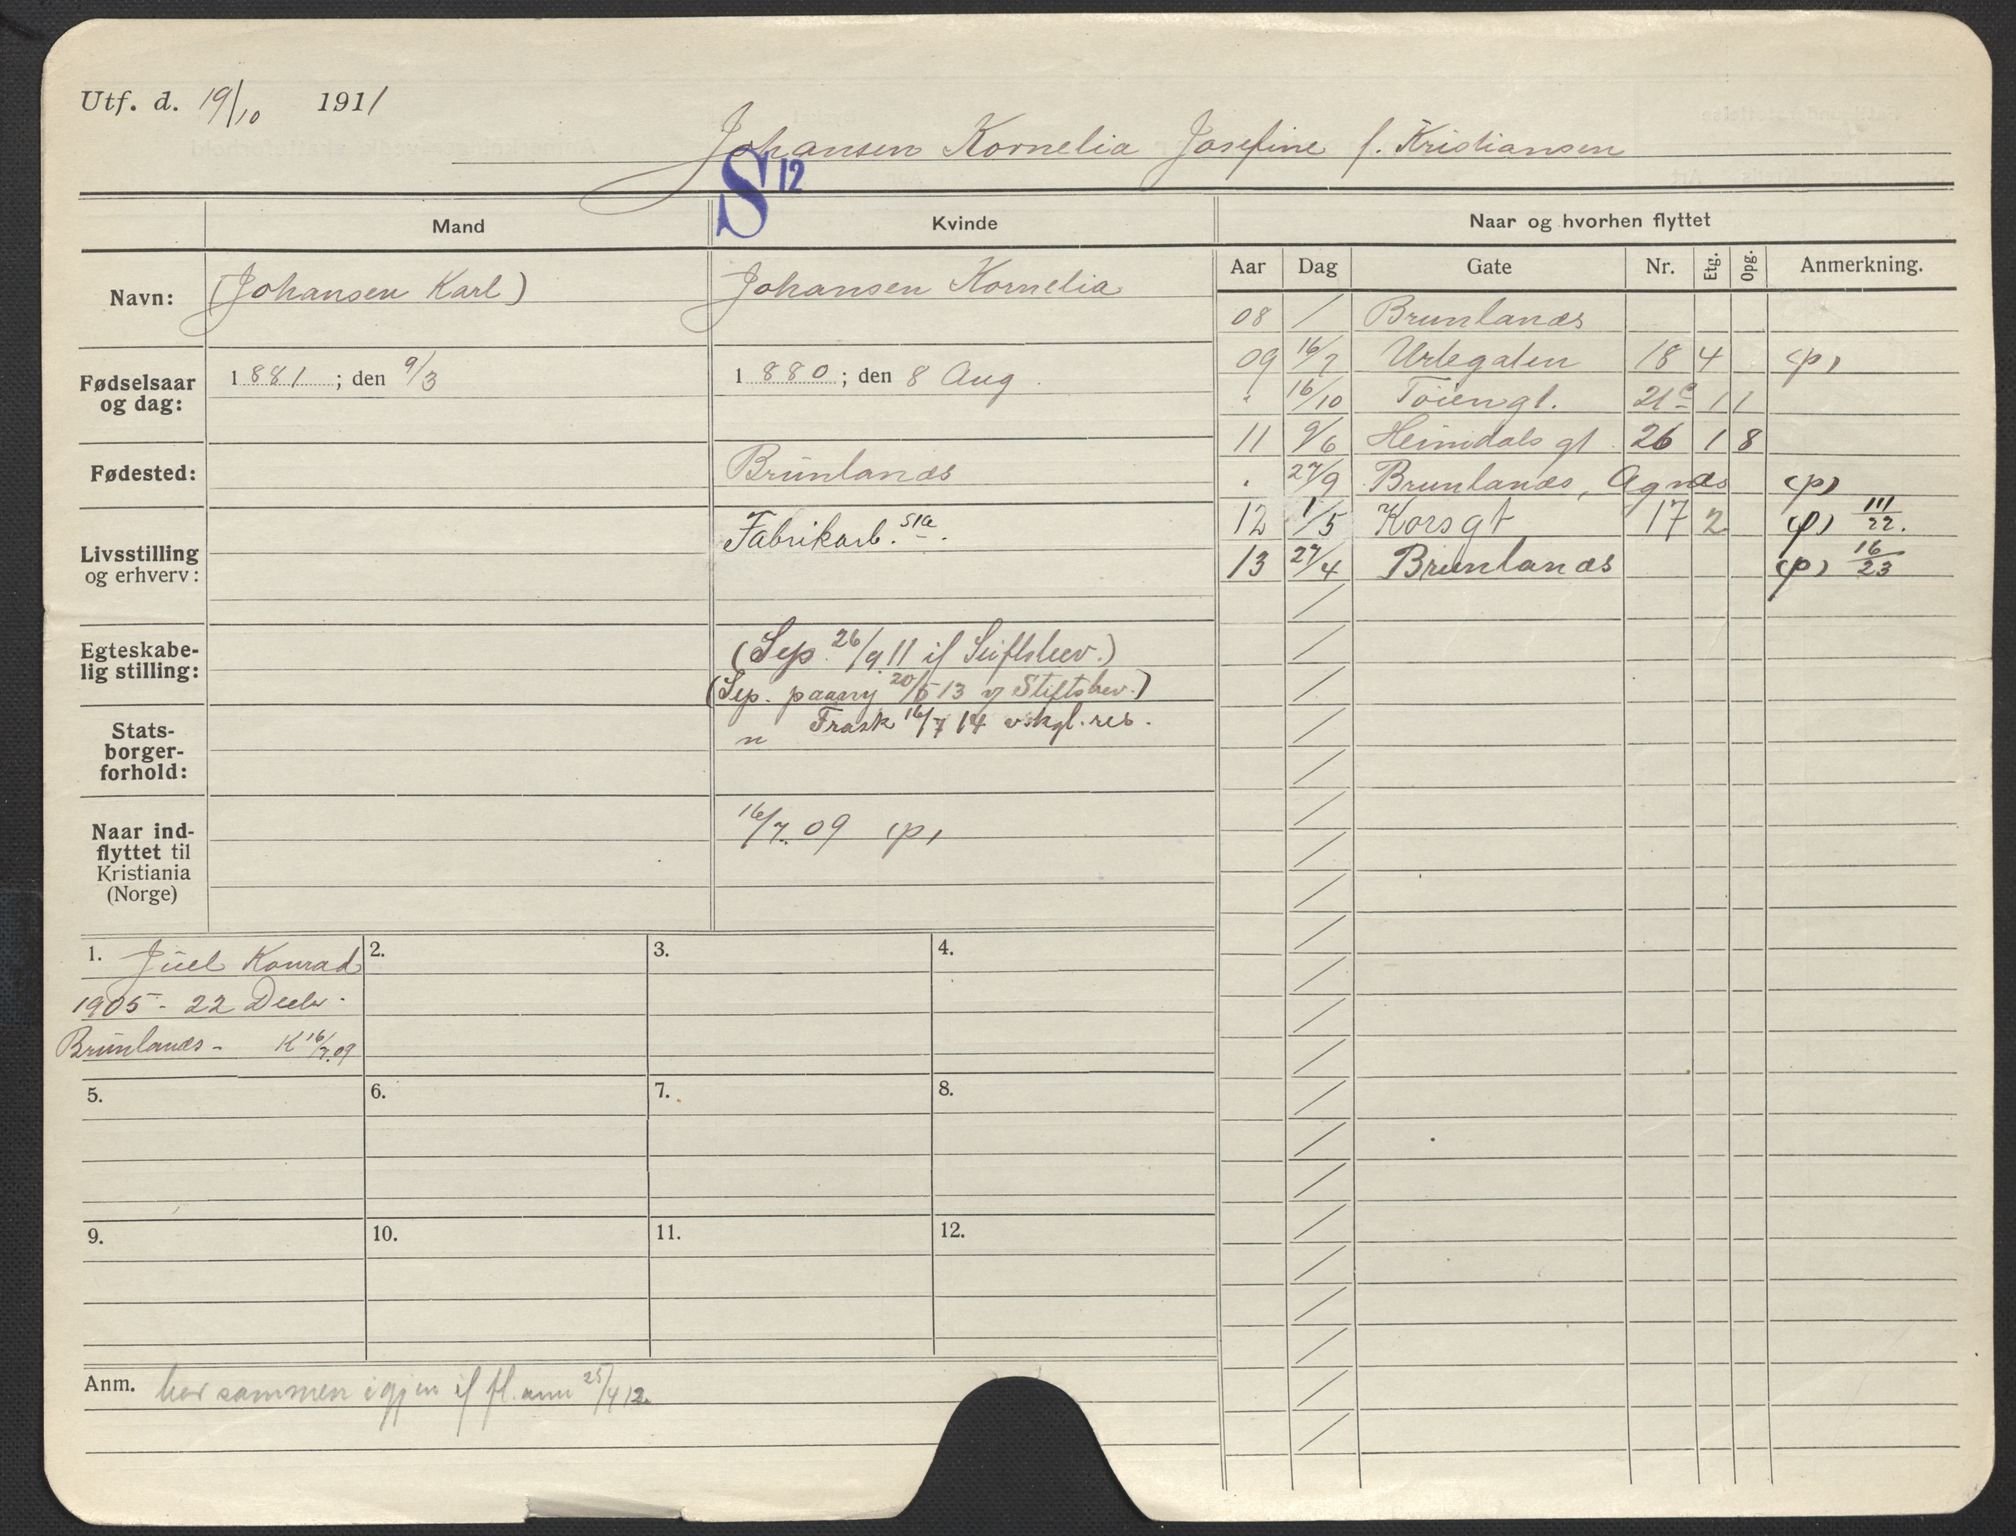 Utf. d. 19/10 1911
Johansen Kornelia Josefine f. Kristiansen
S 12
Mand
Kvinde
Naar og hvorhen flyttet
Aar Dag Gate Nr. Etg. Opg. Anmerkning.
Navn: (Johansen Karl) Johansen Kornelia
Fødselsaar og dag: 1881; den 9/3 1880; den 8 Aug.
Fødested: Brunlanæs
Livsstilling og erhverv: Fabrikarb.
Egteskabe-
lig stilling: (Sep. 26/9 11 if Stiftsbev.)
(Sep. paany 20/5 13 Stiftsbev.)
Stats-
borger-
forhold: " Frask 16/7 14 v kgl. res.
Naar ind-
flyttet til
Kristiania
(Norge)
16/7. 09 (p)
08 / Brunlanæs
09 16/7 Urtegaten 18 4 (p)
" 16/10 Tøiengt. 21c 1 1
11 9/6 Heimdals gt. 26 1 8
" 27/9 Brunlanæs, Agnæs (p)
12 1/5 Korsgt 17 2 (p) 111/22.
13 27/4 Brunlanæs (p) 16/23
1. Juel Konrad
1905 - 22 Decbr.
Brunlanæs - K 16/7.09
2.
3.
4.
5.
6.
7.
8.
9.
10.
11.
12.
Anm. bor sammen igjen if fl.anm 25/4 12.